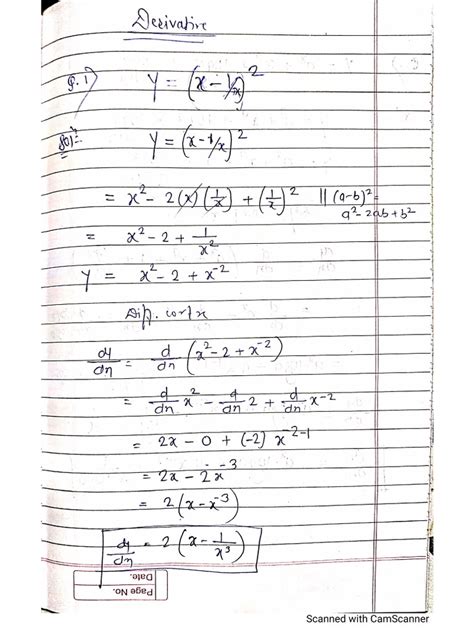 Derivative
Q.1) y = (x - 1/x)^2
Sol:- y = (x - 1/x)^2
= x^2 - 2(x)(1/x) + (1/x)^2 || (a-b)^2 =
a^2 - 2ab + b^2
= x^2 - 2 + 1/x^2
y = x^2 - 2 + x^-2
Diff. wrtx
dy/dx = d/dx (x^2 - 2 + x^-2)
= d/dx x^2 - d/dx 2 + d/dx x^-2
= 2x - 0 + (-2) x^-2-1
= 2x - 2x^-3
= 2(x - x^-3)
dy/dx = 2(x - 1/x^3)
Page No.
Date.
Scanned with CamScanner